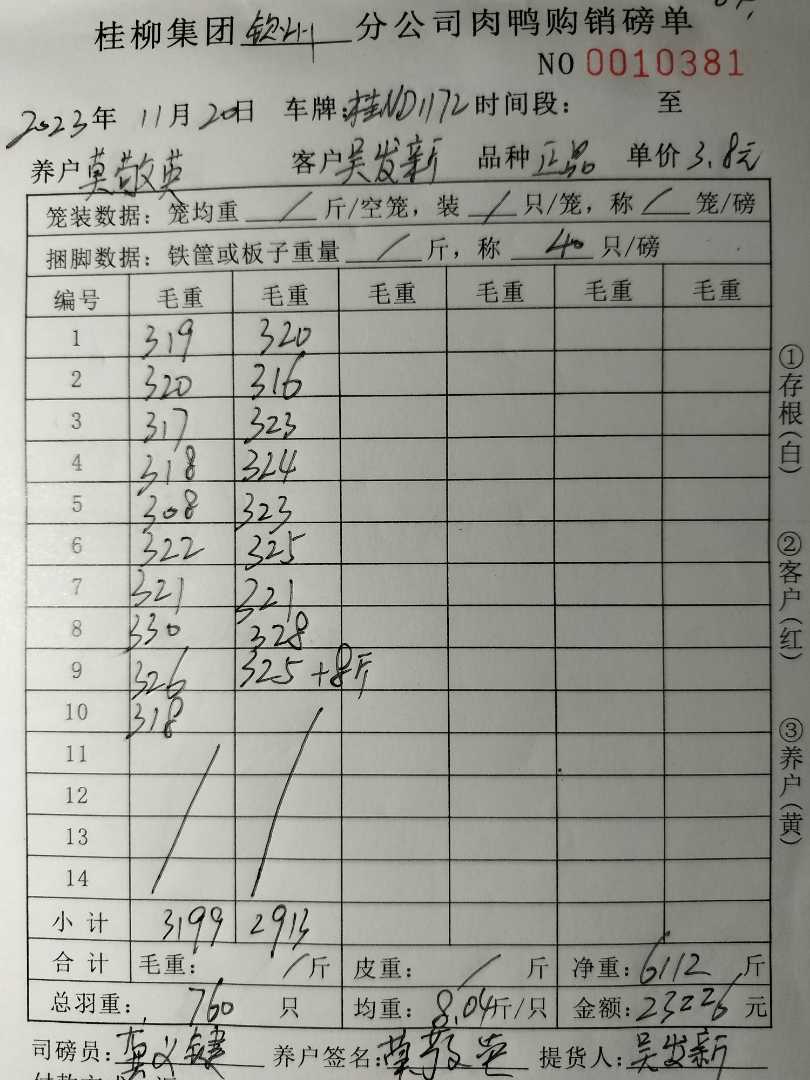 桂柳集团 钦州 分公司肉鸭购销磅单
NO 0010381
2023年 11月20日 车牌:桂ND1172 时间段: 至
养户 莫敬英 客户 吴发新 品种 正品 单价 3.8元
笼装数据:笼均重 / 斤/空笼,装 / 只/笼,称 / 笼/磅
捆脚数据:铁筐或板子重量 / 斤,称 40 只/磅
编号 毛重 毛重 毛重 毛重 毛重 毛重
1 319 320
2 320 316
3 317 323
4 318 324
5 308 323
6 322 325
7 321 321
8 330 328
9 326 325+8斤
10 318
11
12
13
14
小计 3199 2913
合计 毛重: / 斤 皮重: / 斤 净重:6112 斤
总羽重: 760 只 均重:8.04斤/只 金额:23226元
司磅员:莫义键 养户签名:莫敬英 提货人:吴发新
①存根(白) ②客户(红) ③养户(黄)